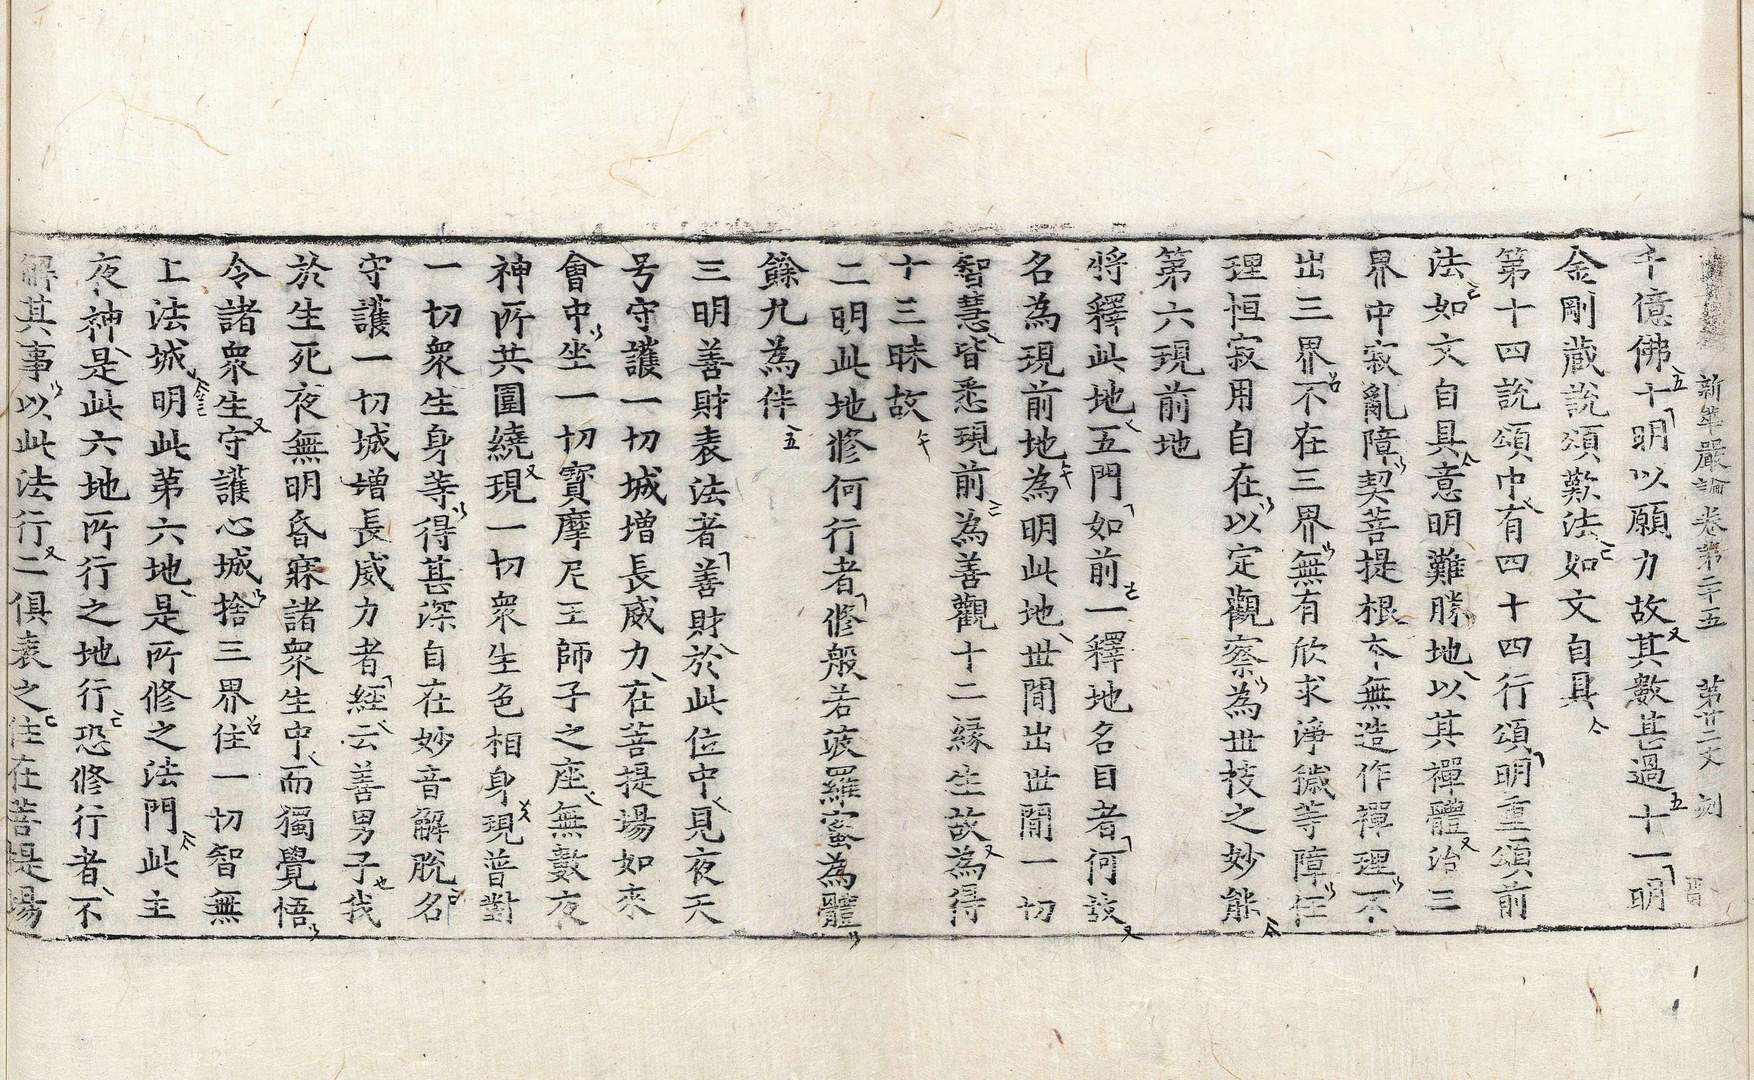 新華嚴論卷第二十五 第廿二丈 刻
千億佛十明以願力故其數甚過十一明
金剛藏說頌歎法如文自具
第十四說頌中有四十四行頌明重頌前
法如文自具意明難勝地以其禪體治三
界中寂亂障契菩提根本無造作禪理不
出三界不在三界無有欣求淨穢等障任
理恒寂用自在以定觀察為世技之妙能
第六現前地
將釋此地五門如前一釋地名目者何故
名為現前地為明此地世間出世間一切
智慧皆悉現前為善觀十二緣生故為得
十三昧故
二明此地修何行者修般若波羅蜜為體
餘九為伴
三明善財表法者善財於此位中見夜天
号守護一切城增長威力在菩提場如來
會中坐一切寶摩尼王師子之座無數夜
神所共圍繞現一切眾生色相身現普對
一切眾生身等得甚深自在妙音解脫名
守護一切城增長威力者經云善男子我
於生死夜無明昏寐諸眾生中而獨覺悟
令諸眾生守護心城捨三界住一切智無
上法城明此第六地是所修之法門此主
夜神是此六地所行之地行恐修行者不
解其事以此法行二俱表之住在菩提場